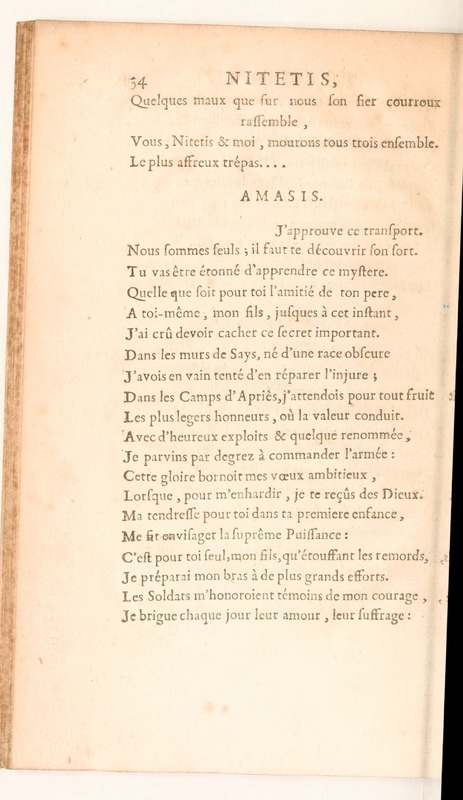 34 NITETIS,
Quelques maux que ſur nous ſon fier courroux
raſſemble ,
Vous, Nitetis & moi , mourons tous trois enſemble.
Le plus affreux trépas. . . .
AMASIS.
J'approuve ce tranſport.
Nous ſommes ſeuls ; il faut te découvrir ſon ſort.
Tu vas être étonné d'apprendre ce myſtere.
Quelle que ſoit pour toi l'amitié de ton pere ,
A toi-même , mon fils , juſques à cet inſtant ,
J'ai crû devoir cacher ce ſecret important.
Dans les murs de Says, né d'une race obſcure
J'avois en vain tenté d'en réparer l'injure ;
Dans les Camps d'Apriès, j'attendois pour tout fruit
Les plus legers honneurs , où la valeur conduit.
Avec d'heureux exploits & quelque renommée ,
Je parvins par degrez à commander l'armée :
Cette gloire bornoit mes vœux ambitieux ,
Lorſque , pour m'enhardir , je te reçûs des Dieux.
Ma tendreſſe pour toi dans ta premiere enfance ,
Me fit enviſager la ſuprême Puiſſance :
C'eſt pour toi ſeul, mon fils, qu'étouffant les remords,
Je préparai mon bras à de plus grands efforts.
Les Soldats m'honoroient témoins de mon courage ,
Je brigue chaque jour leur amour , leur ſuffrage :